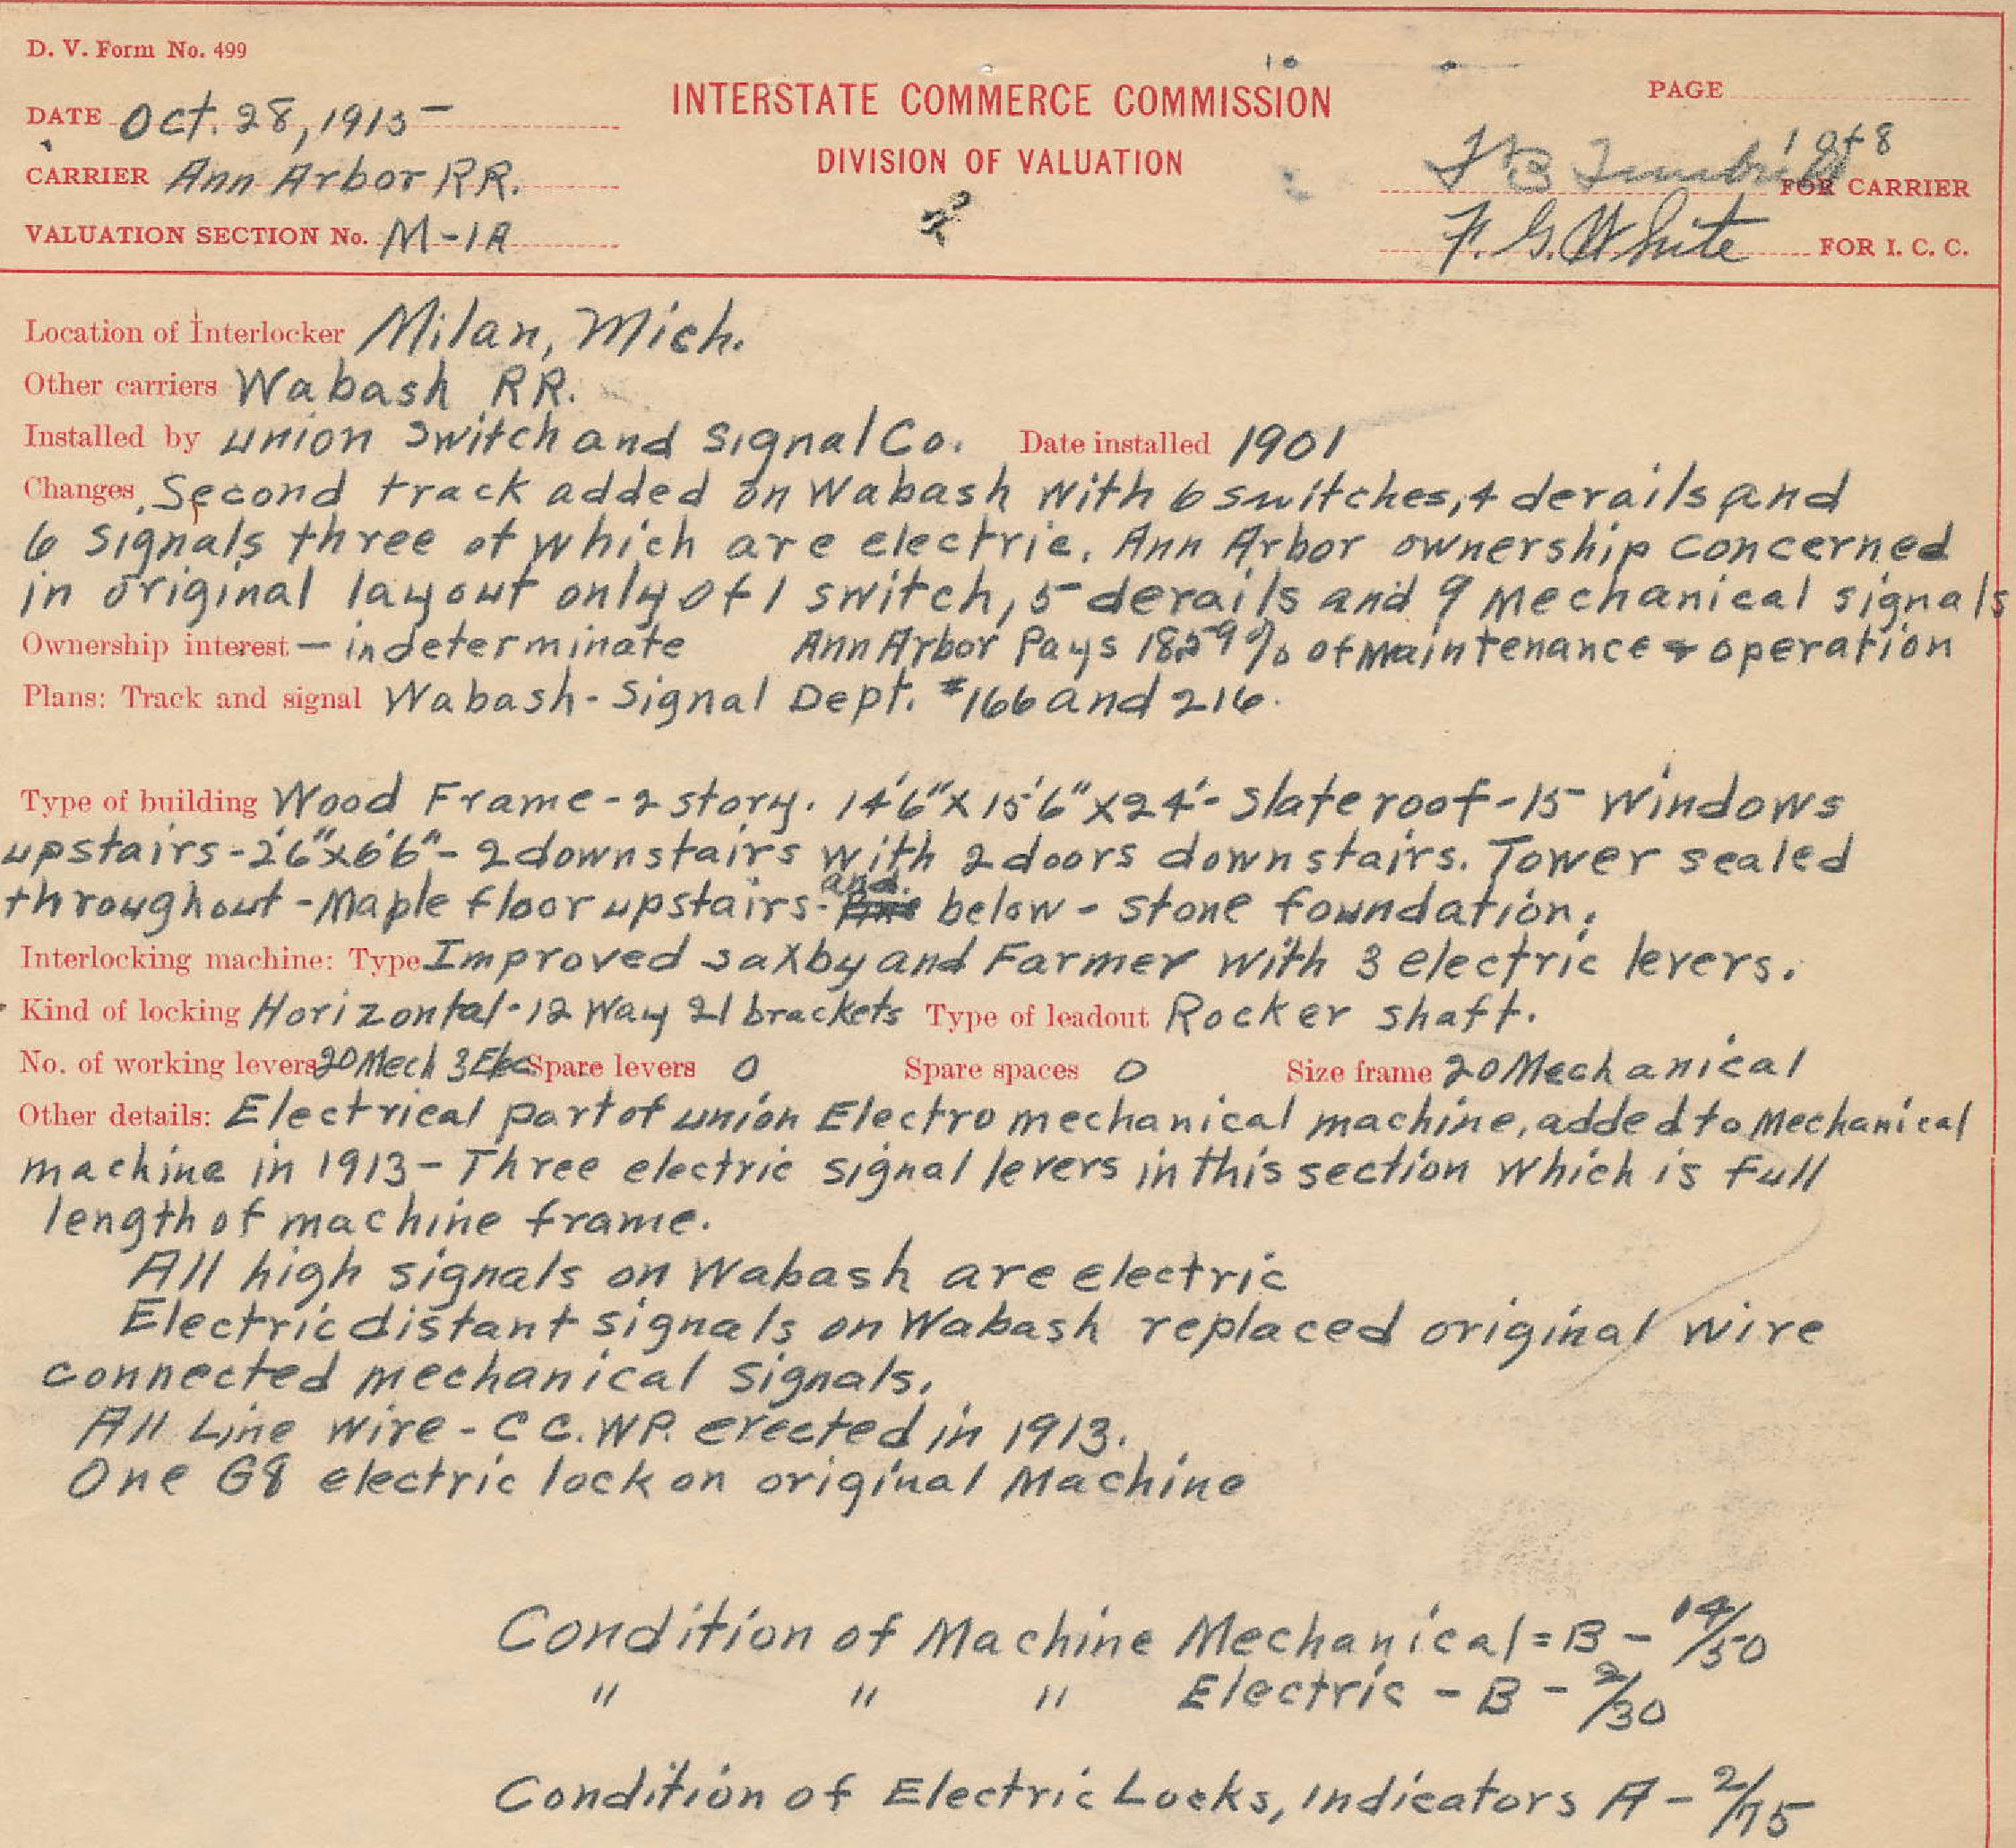 D. V. Form No. 499
DATE Oct. 28, 1915
CARRIER Ann Arbor RR.
VALUATION SECTION No. M-1A
INTERSTATE COMMERCE COMMISSION
DIVISION OF VALUATION
2
PAGE
1 of 8
FOR CARRIER
F. G. White FOR I. C. C.
Location of Interlocker Milan, Mich.
Other carriers Wabash RR.
Installed by Union Switch and Signal Co. Date installed 1901
Changes, Second track added on Wabash with 6 switches, 4 derails and
6 signals three of which are electric. Ann Arbor ownership concerned
in original layout only of 1 switch, 5 derails and 9 mechanical signals
Ownership interest - indeterminate Ann Arbor Pays % of Maintenance & operation
Plans: Track and signal Wabash - Signal Dept. #166 and 216.
Type of building Wood Frame - 2 story. 14'6" X 15'6" X 24' - Slate roof - 15 windows
upstairs - 2'6" x 6'6" - 2 downstairs with 2 doors downstairs. Tower sealed
throughout - Maple floor upstairs - and below - stone foundation.
Interlocking machine: Type Improved Saxby and Farmer with 3 electric levers.
Kind of locking Horizontal - 12 Way 21 brackets Type of leadout Rocker shaft.
No. of working levers 20 Mech 3 Elec Spare levers 0 Spare spaces 0 Size frame 20 Mechanical
Other details: Electrical part of Union Electro mechanical machine, added to Mechanical
machine in 1913 - Three electric signal levers in this section which is full
length of machine frame.
All high signals on Wabash are electric
Electric distant signals on Wabash replaced original wire
connected mechanical signals.
All Line wire - C C. WP. erected in 1913.
One G8 electric lock on original Machine
Condition of Machine Mechanical = B - 14/50
" " " Electric - B - 2/30
Condition of Electric Locks, Indicators A - 2/15